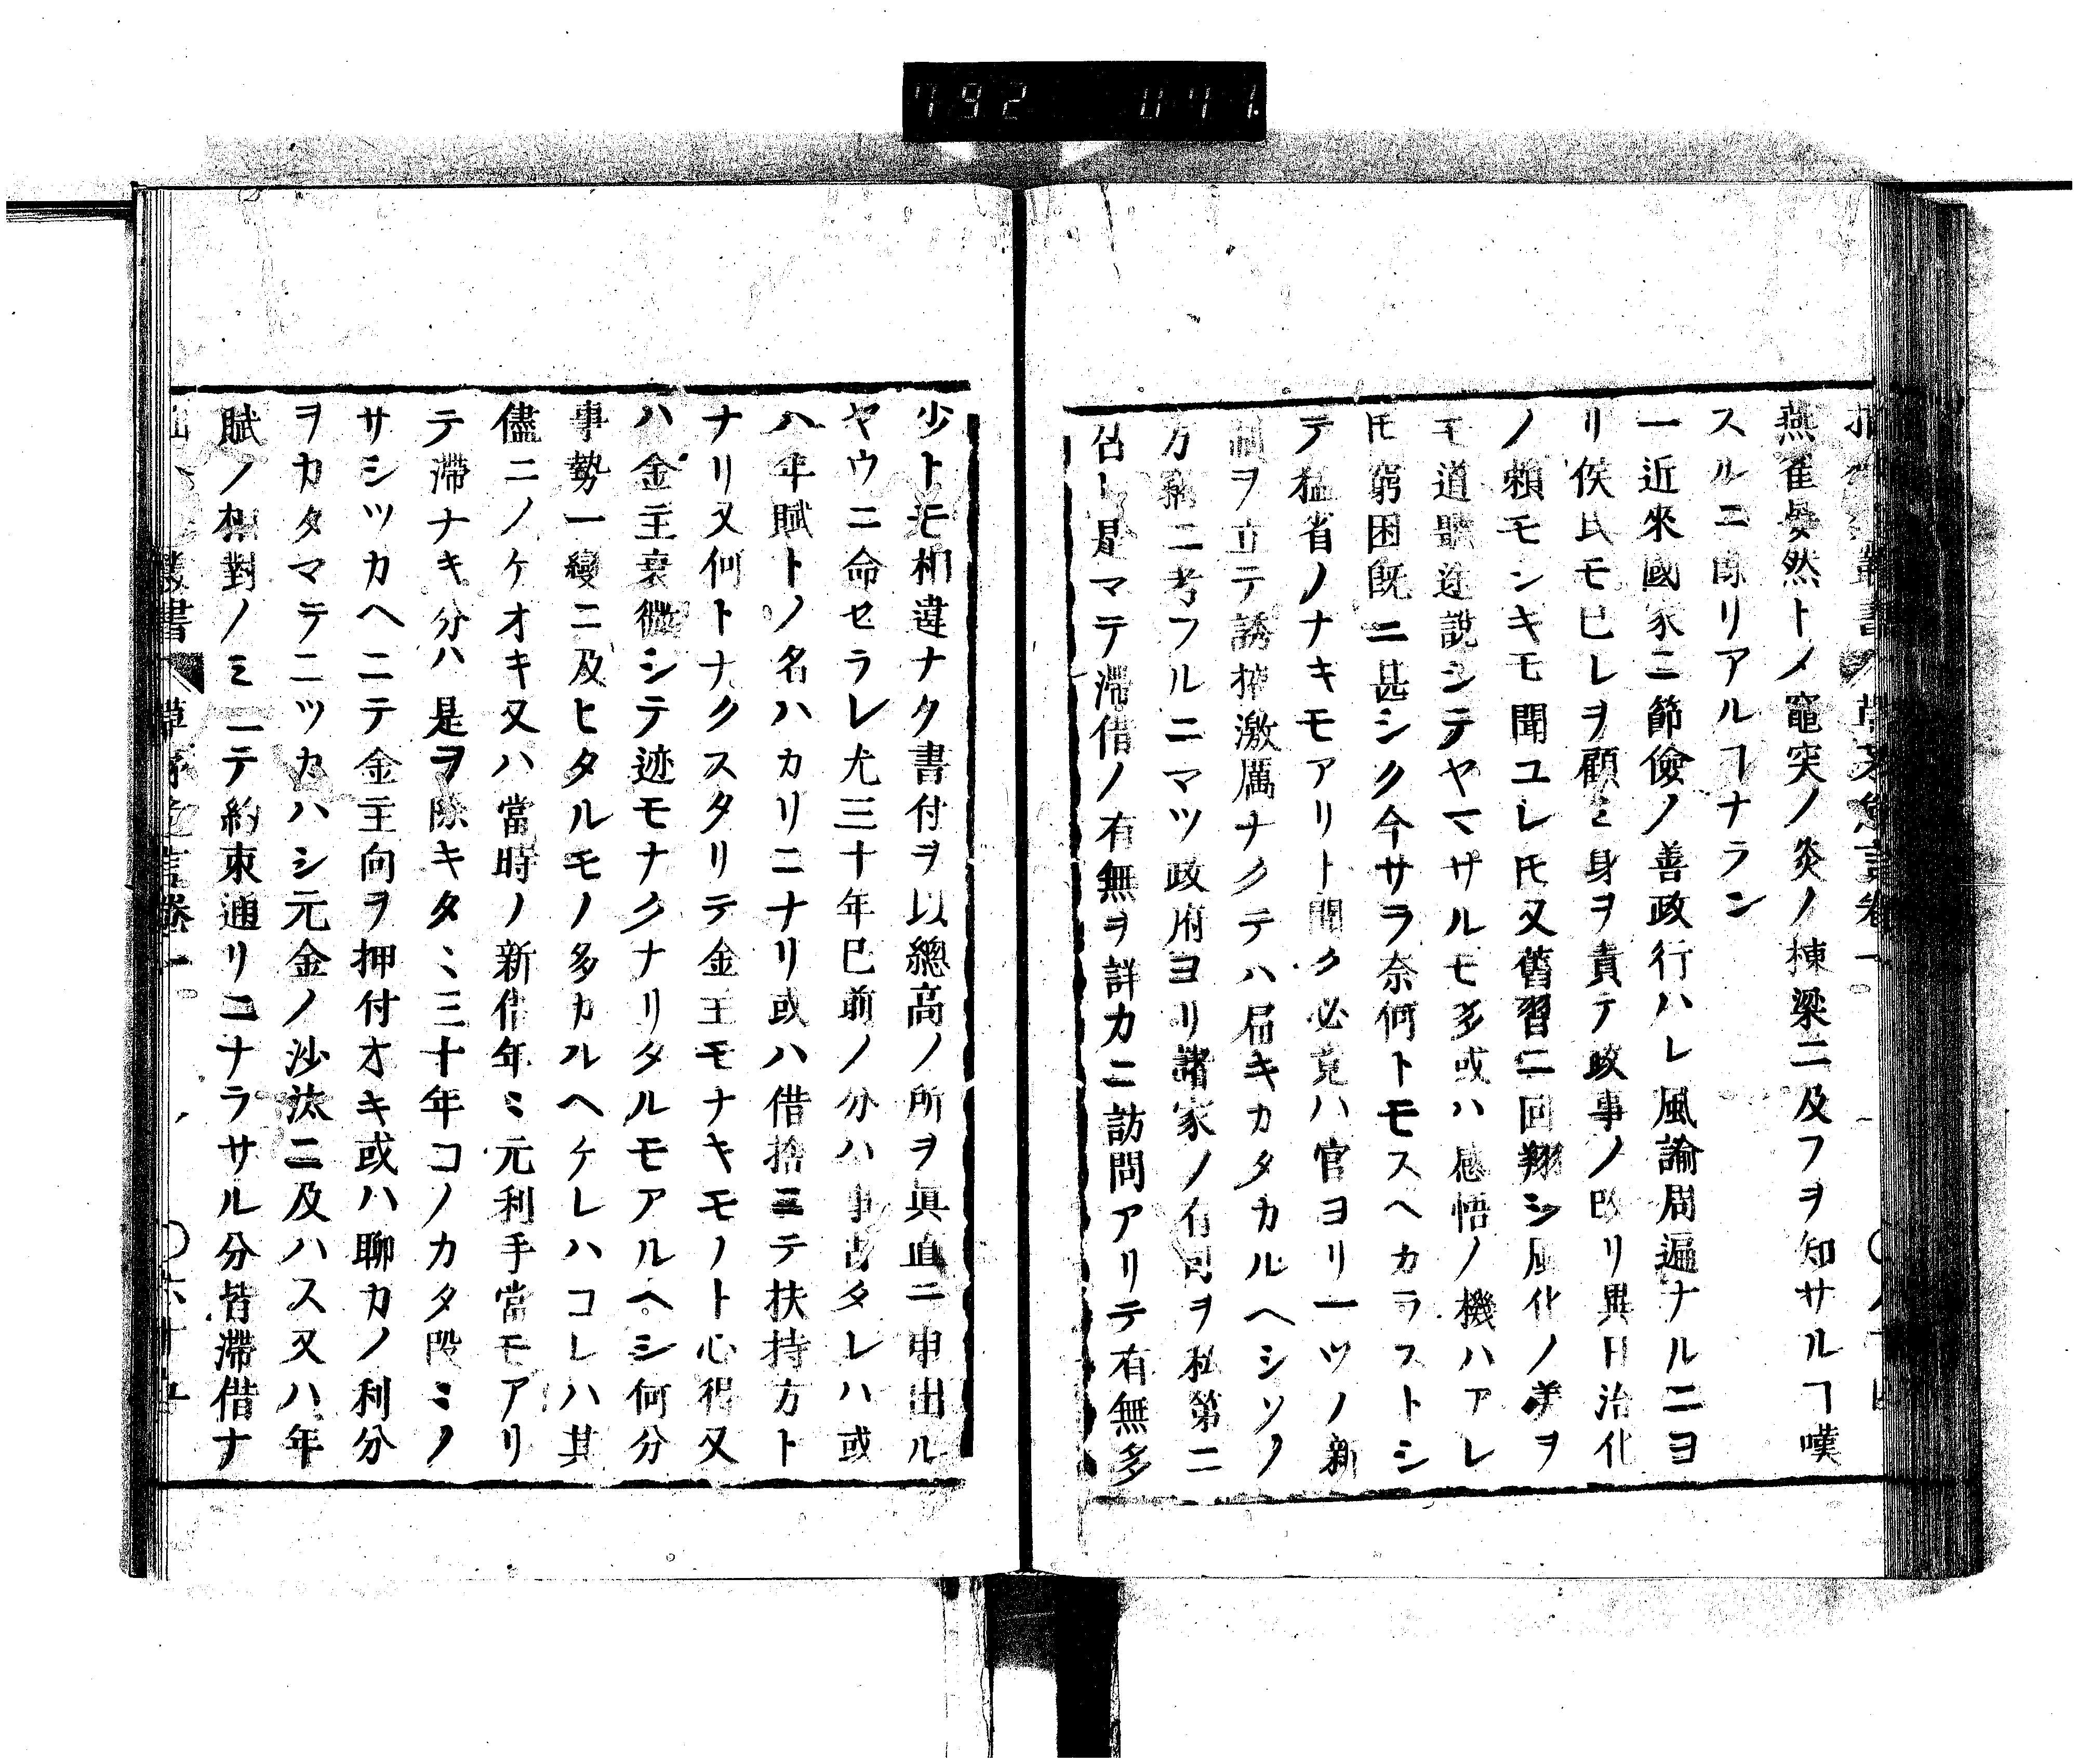 792 041
燕雀晏然トメ竈突ノ炎ノ棟梁ニ及フヲ知サルヿ嘆
スルニ餘リアルヿナラン
一近來國家ニ節儉ノ善政行ハレ風諭周遍ナルニヨ
リ侯氏モ已レヲ顧ミ身ヲ責テ政事ノ改リ異日治化
ノ頼モシキモ聞ユレ𪜈又舊習ニ回翔シ風化ノ美ヲ
モ道聽途說シテヤマサルモ多或ハ感悟ノ機ハアレ
𪜈窮困既ニ甚シク今サラ奈何トモスヘカラストシ
テ猛省ノナキモアリト聞ク必竟ハ官ヨリ一ツノ新
制ヲ立テ誘掖激厲ナクテハ屆キカタカルヘシソノ
方繩ニ考フルニマツ政府ヨリ諸家ノ有司ヲ私第ニ
召ー是マテ滯借ノ有無ヲ詳カニ訪問アリテ有無多
少トモ相違ナク書付ヲ以總高ノ所ヲ眞直ニ申出ル
ヤウニ命セラレ尤三十年已前ノ分ハ事古タレハ或
ハ年賦トノ名ハカリニナリ或ハ借捨ニテ扶持方ト
ナリ又何トナクスタリテ金主モナキモノト心得又
ハ金主衰微シテ迹モナクナリタルモアルヘシ何分
事勢一變ニ及ヒタルモノ多カルヘケレハコレハ其
儘ニノケオキ又ハ當時ノ新借年ミ元利手當モアリ
テ滯ナキ分ハ是ヲ除キタヽ三十年コノカタ段ミノ
サシツカヘニテ金主向ヲ押付オキ或ハ聊カノ利分
ヲカタマテニツカハシ元金ノ沙汰ニ及ハス又ハ年
賦ノ相對ノミニテ約束通リニナラサル分皆滯借ナ
叢書 草茅危言卷一